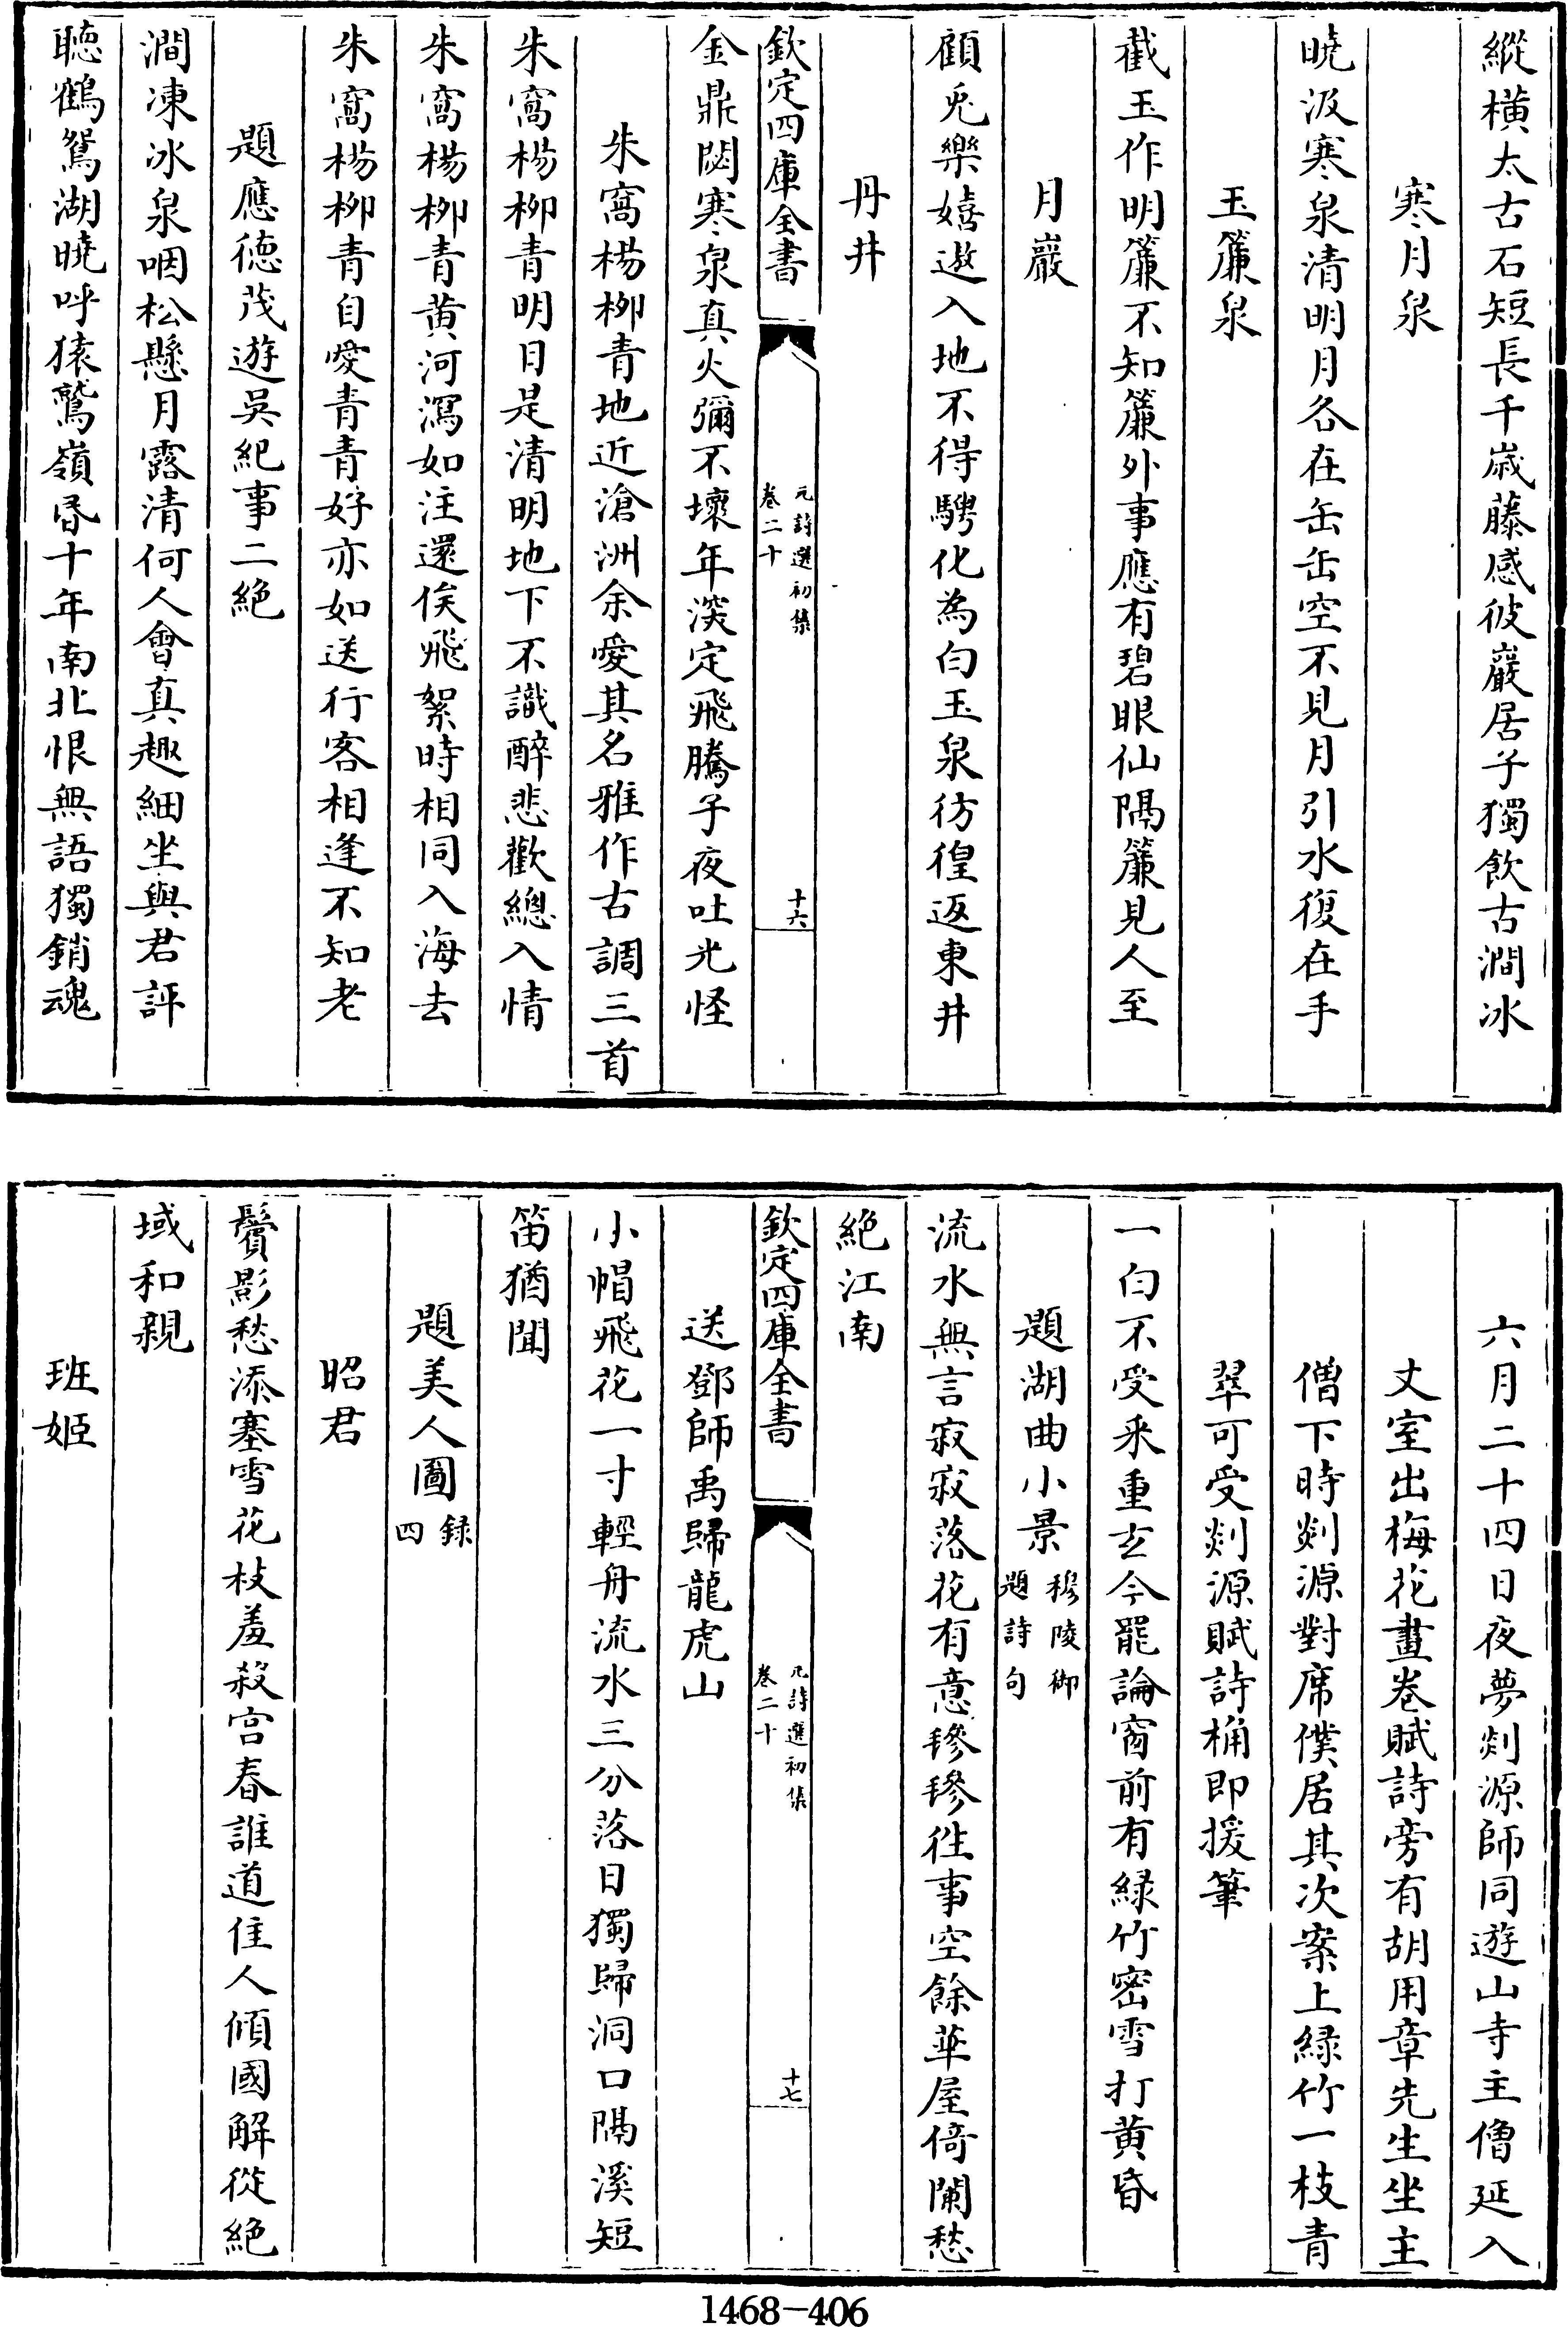 縱橫太古石短長千歲藤感彼巖居子獨飲古澗冰
寒月泉
曉汲寒泉清明月各在缶缶空不見月引水復在手
玉簾泉
截玉作明簾不知簾外事應有碧眼仙隔簾見人至
月巖
顧兎樂嬉遨入地不得騁化為白玉泉彷徨返東井
丹井
欽定四庫全書
元詩選初集
卷二十
十六
金鼎閟寒泉真火彌不壞年深定飛騰子夜吐光怪
朱窩楊柳青地近滄洲余愛其名雅作古調三首
朱窩楊柳青明日是清明地下不識醉悲歡總入情
朱窩楊柳青黄河瀉如注還俟飛絮時相同入海去
朱窩楊柳青自愛青青好亦如送行客相逢不知老
題應德茂遊吳紀事二絶
澗凍冰泉咽松懸月露清何人會真趣細坐與君評
聴鶴鴛湖曉呼猿鷲嶺昏十年南北恨無語獨銷魂
六月二十四日夜夢剡源師同遊山寺主僧延入
丈室出梅花畫卷賦詩旁有胡用章先生坐主
僧下時剡源對席僕居其次案上緑竹一枝青
翠可受剡源賦詩桷即援筆
一白不受采重玄今罷論窗前有緑竹密雪打黄昏
題湖曲小景
穆陵御
題詩句
流水無言寂寂落花有意毶毶徃事空餘華屋倚闌愁
絶江南
欽定四庫全書
元詩選初集
卷二十
十七
送鄧師禹歸龍虎山
小帽飛花一寸輕舟流水三分落日獨歸洞口隔溪短
笛猶聞
題美人圖
録
四
昭君
鬢影愁添塞雪花枝羞殺宫春誰道佳人傾國解從絶
域和親
班姬
1468-406